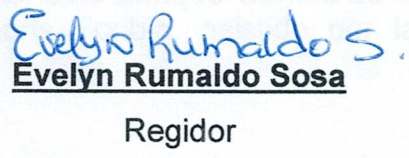 Evelyn Rumaldo S.
Evelyn Rumaldo Sosa
Regidor